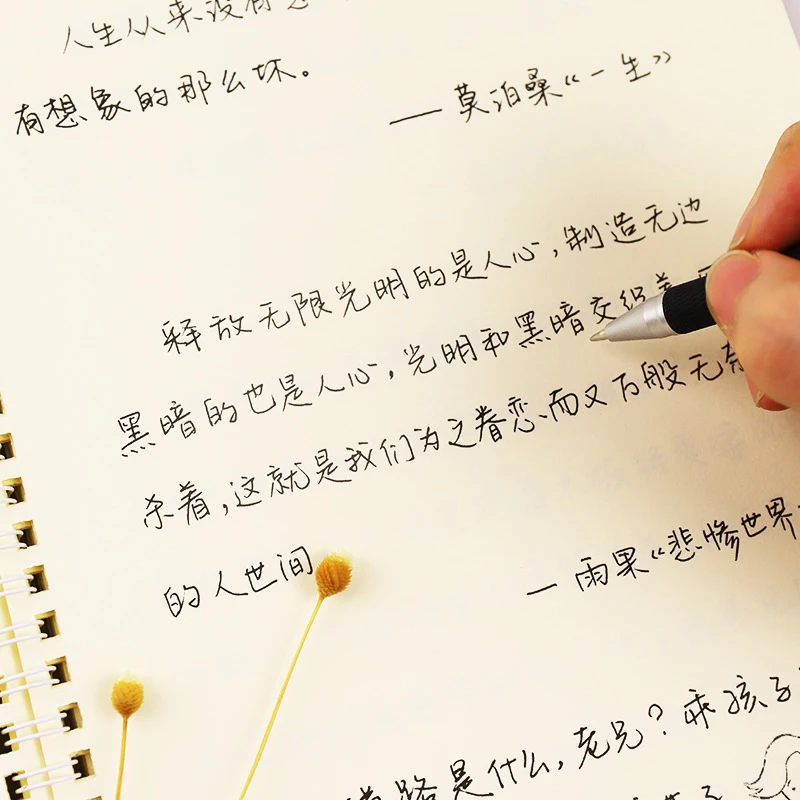 人生从来没有
有想象的那么坏。
——莫泊桑《一生》
释放无限光明的是人心,制造无边
黑暗的也是人心,光明和黑暗交织着
杀着,这就是我们为之眷恋而又万般无奈
的人世间
—雨果《悲惨世界
路是什么,老兄?乖孩子